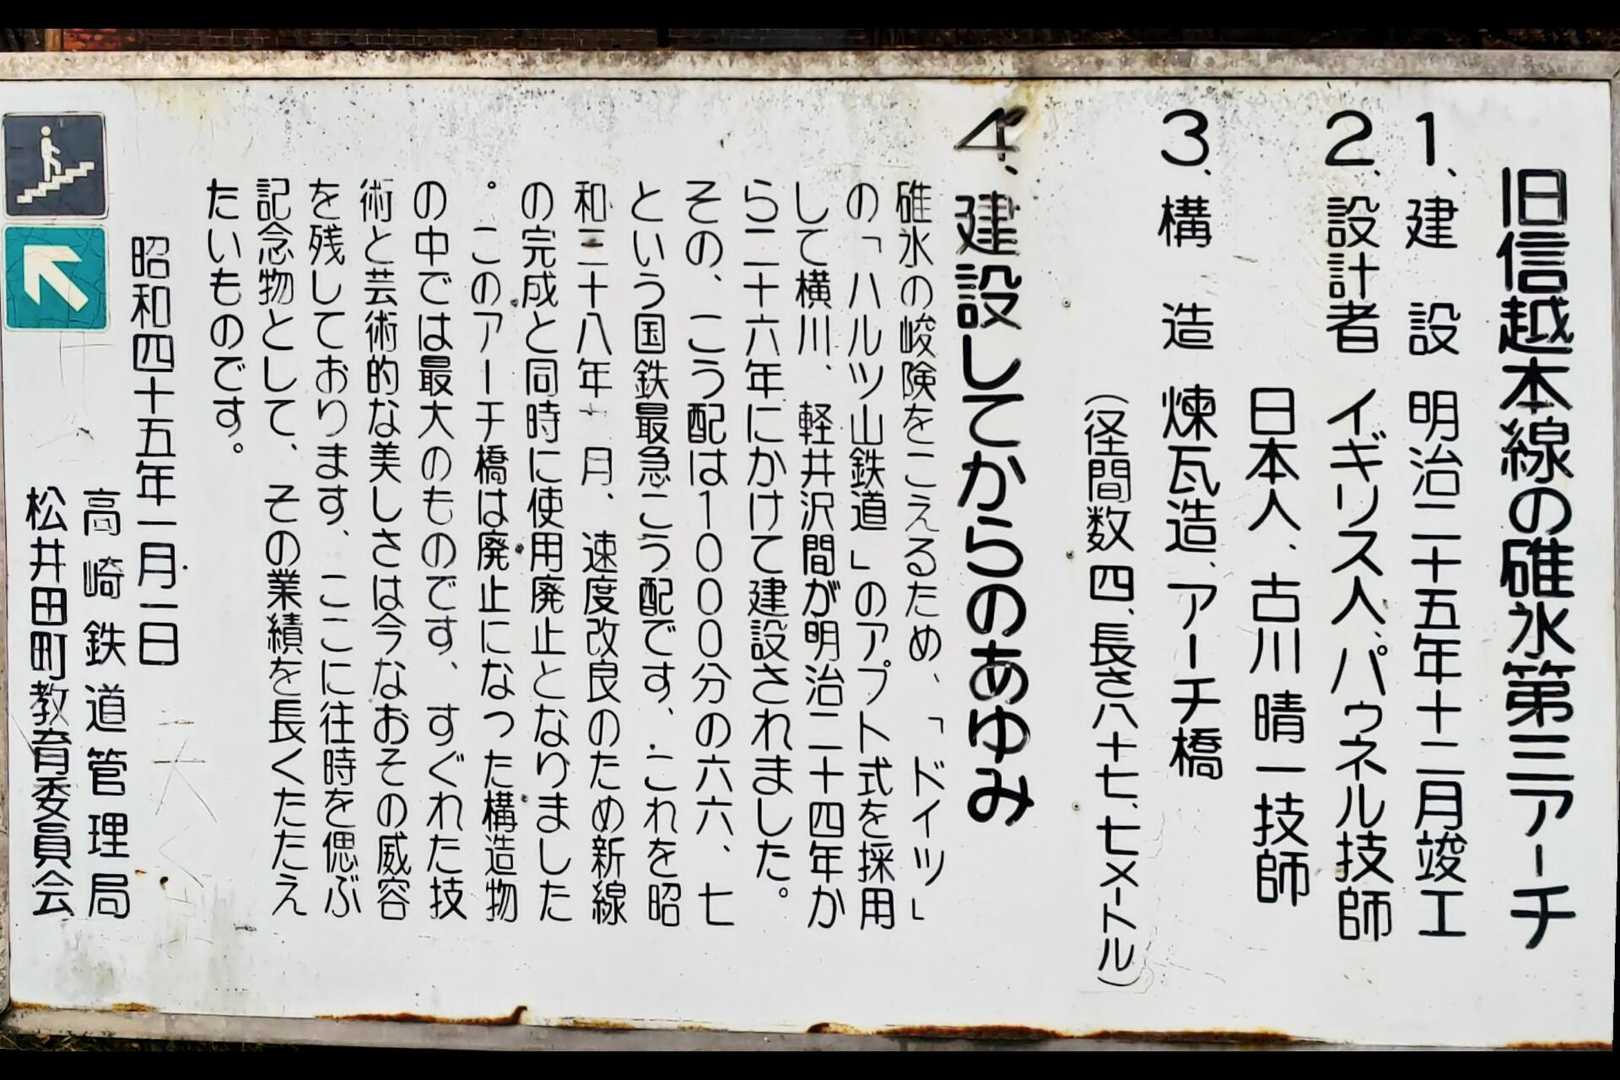 旧信越本線の碓氷第三アーチ
1、建設 明治二十五年十二月竣工
2、設計者 イギリス人、パゥネル技師
日本人、古川晴一技師
3、構造 煉瓦造、アーチ橋
(径間数四、長さ八十七、七メートル)
4、建設してからのあゆみ
碓氷の峻険をこえるため、「ドイツ」
の「ハルツ山鉄道」のアプト式を採用
して横川、軽井沢間が明治二十四年か
ら二十六年にかけて建設されました。
その、こう配は1000分の六六、七
という国鉄最急こう配です、これを昭
和三十八年十月、速度改良のため新線
の完成と同時に使用廃止となりました
。このアーチ橋は廃止になった構造物
の中では最大のものです、すぐれた技
術と芸術的な美しさは今なおその威容
を残しております、ここに往時を偲ぶ
記念物として、その業績を長くたたえ
たいものです。
昭和四十五年一月一日
高崎鉄道管理局
松井田町教育委員会